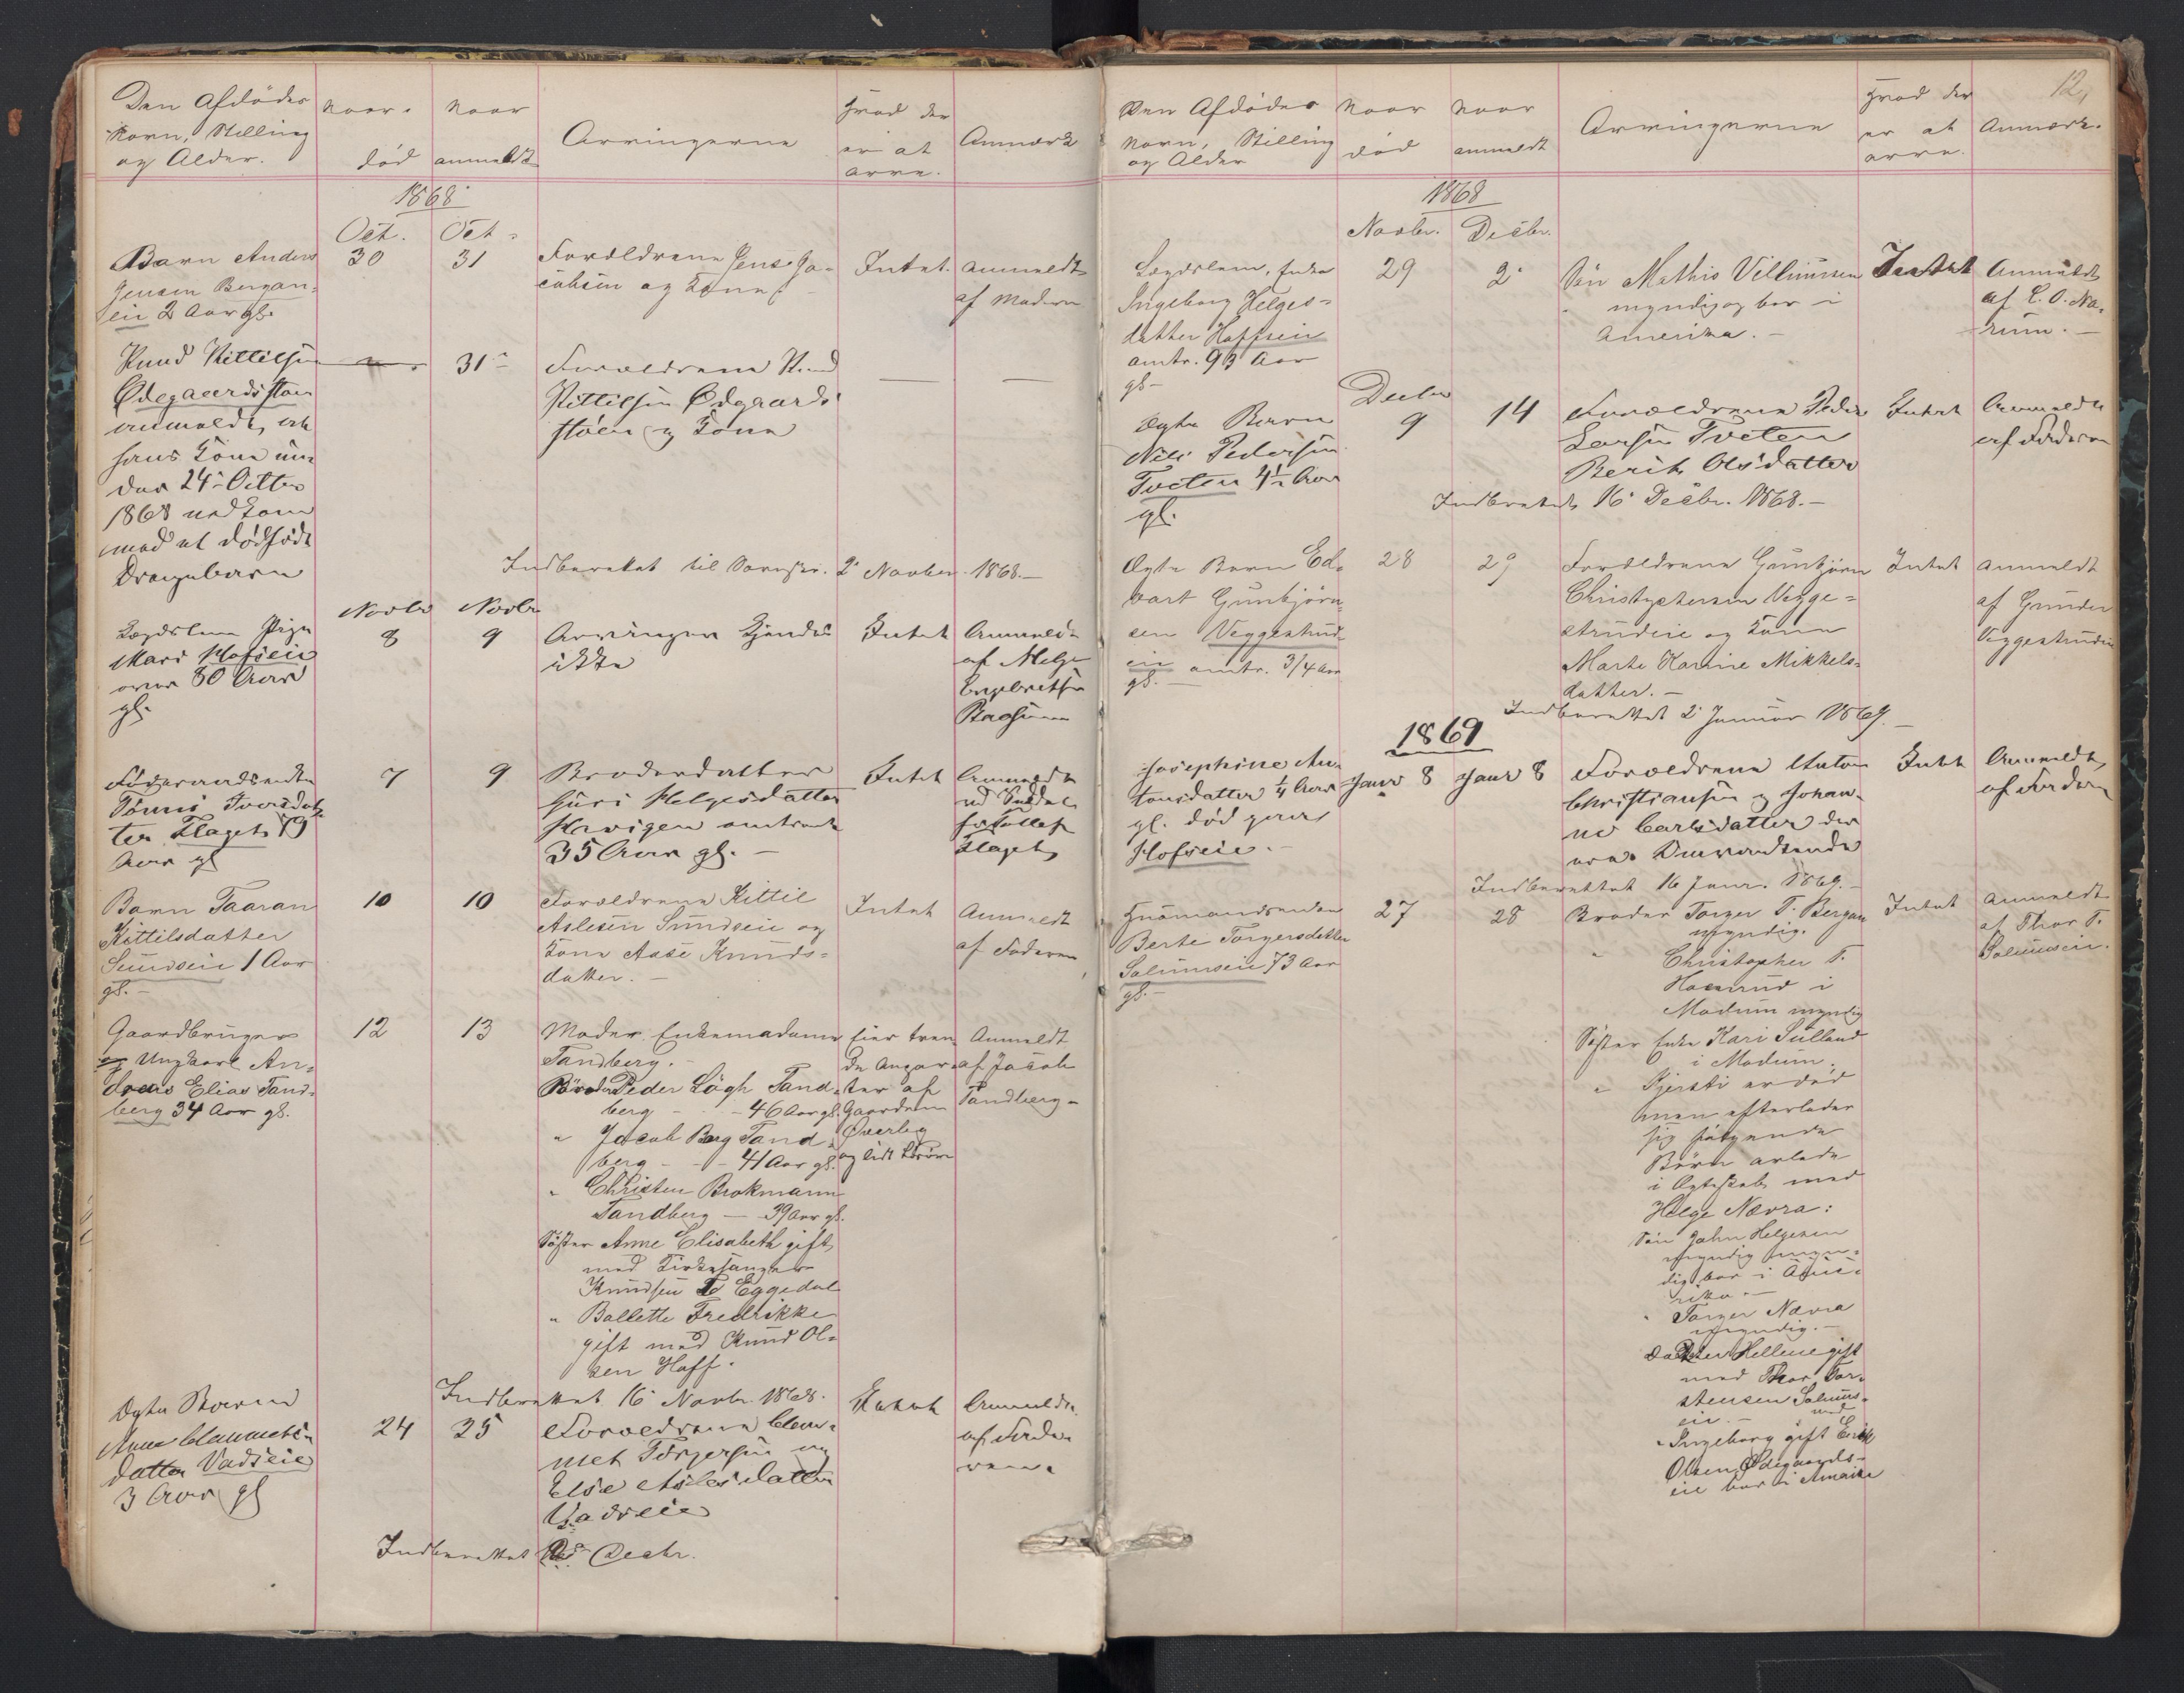 Den Afdødes
Navn, Stilling
og Alder.
Naar
død
Naar
anmeldt
Arvingerne
Hvad der
er at
arve.
Anmærk
1868
Oct. Oct.
Barn Anders
Jensen Bergan-
eie 2 Aar gl.
30
31
Forældrene Jens Ja-
cobsen og Kone
Intet.
anmeldt
af Moderen
Knud Kittilsen
Ødegaardsstøen
anmeldt, at
hans Kone un-
der 24de Octbr
1868 nedkom
med et dødfødt
Drengebarn
31
Forældrene Knud
Kittilsen Ødegaards
støen og Kone
Indberettet til Sorenskr. 2 Novber. 1868.
Novbr Novbr
Lægdslem Pige
Mari Hofseie
over 80 Aar
gl.
8
9
Arvinger kjendes
ikke
Intet
Anmeldt
af Helge
Engebretsen
Føderaadsenke
Tønnis Iversdat-
ter Flaget 79
Aar gl
7
9
Broderdatter
Guri Helgesdatter
omtrent
35 Aar gl.
Intet
Anmeldt
Flaget
Barn Taaran
Kittilsdatter
Sundseie 1 Aar
gl.
10
10
Forældrene Kittil
Aslesen Sundseie og
Kone Aase Knuds-
datter.
Intet
Anmeldt
af Faderen
Gaardbruger
og Ungkarl An-
dreas Elias Tand-
berg 34 Aar gl.
12
13
Moder Enkemadame
Tandberg.
Brødr Peder Lögh Tand-
berg - 46 Aar gl.
" Jacob Borg Tand-
berg - 41 Aar gl.
" Christen Brokmann
Tandberg — 39 Aar gl.
Søster Anne Elisabeth gift
med Kirkesanger
Knudsen Eggedal
" Ballette Fredrikke
gift med Knud Ol-
sen Hoff.
Eier tren
de Anpar-
ter af
Gaardene
Øverby
og lidt Løsøre
Anmeldt
af Jacob
Tandberg
Indberettet 16 Novbr. 1868.
Ægte Barn
Anne Clemmets-
datter Vadseie
3 Aar gl
24
25
Forældrene Clem-
met Torgersen og
Else Aslesdatter
Vadseie
Intet
Anmeldt
af Fade-
ren.
Indberettet Decbr.
12,
Den Afdødes
Navn, Stilling
og Alder
Naar
død
Naar
anmeldt
Arvingerne
Hvad der
er at
arve.
Anmærk.
1868
Novbr. Decbr.
Lægdslem, Enke
Ingeborg Helges-
datter Hoffseie
omtr. 93 Aar
gl.
29
2
Søn Mathis Villumsen
myndig og bor i
Amerika.
Intet
Anmeldt
af L. O. Na-
rum.
Decbr
Ægte Barn
Nils Pedersen
Tveten 4½ Aar
gl.
9
14
Forældrene Peder
Larsen Tveten
Berit Olsdatter
Intet
Anmeldt
af Faderen
Indberettet 16 Decbr. 1868.
Ægte Barn Ed-
vart Gunbjørn-
sen Veggestrud-
eie omtr. 3/4 Aar
gl.
28
29
Forældrene Gunbjørn
Christophersen Vegge-
strudeie og Kone
Marte Karine Mikkels-
datter.
Intet
anmeldt
af Gunder
Veggestrudeie
Indberettet 2 Januar 1869.
1869
Josephine An-
tonsdatter ¼ Aar
gl. død paa
Hofseie.
Janr 8
Janr 8
Forældrene Anton
Christiansen og Johan-
ne Carlsdatter der
ere Omvandrende
Intet
Anmeldt
af Faderen
Indberettet 16 Janr. 1869.
Huusmandsenke
Berte Torgersdatter
Solumseie 73 Aar
gl.
27
28
Broder Torger T. Bergan
myndig.
" Christopher T.
i
Modum myndig
Søster Enke Kari Sulland
i Modum.
" Kjersti er død
men efterlader
sig følgende
Børn avlede
i Ægteskab med
Helge Nævra:
Søn John Helgesen
myndig myn-
dig bor i Ame-
rika.
" Torger Nævra
myndig.
Datter Hellene gift
med Thor Tor-
stensen Solums-
eie.
" Ingeborg gift med Erik
Olsen Ødegaards-
eie bor i Amerika
Intet
Anmeldt
af Thor T.
Solumseie.